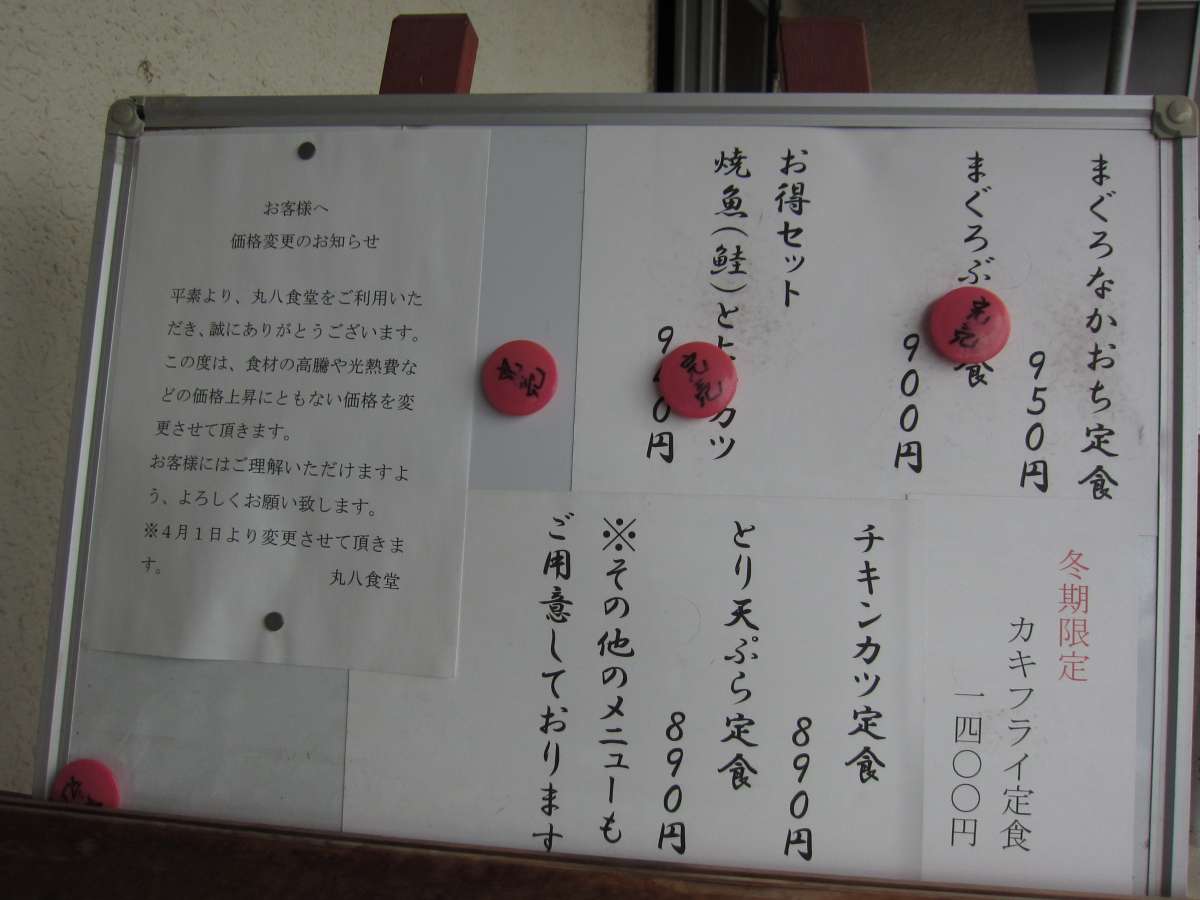 まぐろなかおち定食
950円
まぐろぶ
食
900円
お得セット
焼魚(鮭)と
カツ
円
完売
完売
完売
冬期限定
カキフライ定食
一四〇〇円
チキンカツ定食
890円
とり天ぷら定食
890円
※その他のメニューも
ご用意しております
お客様へ
価格変更のお知らせ
平素より、丸八食堂をご利用いた
だき、誠にありがとうございます。
この度は、食材の高騰や光熱費な
どの価格上昇にともない価格を変
更させて頂きます。
お客様にはご理解いただけますよ
う、よろしくお願い致します。
※4月1日より変更させて頂きま
す。
丸八食堂